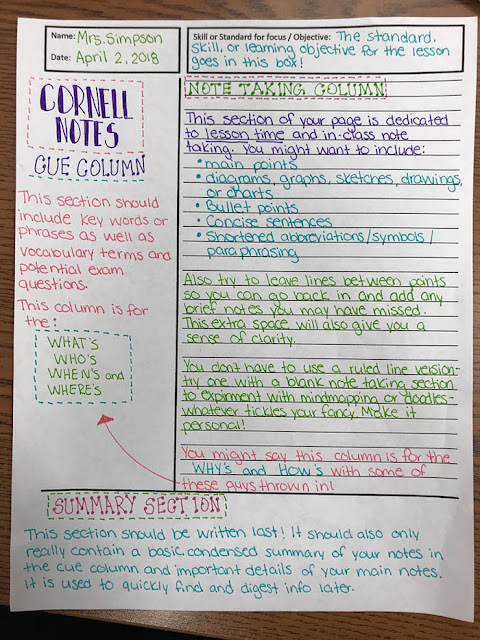 Name: Mrs. Simpson
Date: April 2, 2018
Skill or Standard for focus / Objective: The standard,
skill, or learning objective for the lesson
goes in this box!
CORNELL
NOTES
CUE COLUMN
This section should
include key words or
phrases as well as
vocabulary terms and
potential exam
questions.
This column is for
the:
WHAT'S
WHO'S
WHEN'S and
WHERE'S
NOTE TAKING COLUMN
This section of your page is dedicated
to lesson time and in-class note
taking. You might want to include:
• main points
• diagrams, graphs, sketches, drawings,
or charts
• Bullet points
• Concise sentences
• Shortened abbreviations/symbols/
paraphrasing
Also try to leave lines between points
so you can go back in and add any
brief notes you may have missed.
This extra space will also give you a
sense of clarity.
You dont have to use a ruled line version-
try one with a blank note taking section
to expirment with mindmapping or doodles-
whatever tickles your fancy. Make it
personal!
You might say this column is for the
WHY's and HOW's with some of
these guys thrown in!
SUMMARY SECTION
This section should be written last! It should also only
really contain a basic, condensed summary of your notes in
the cue column and important details of your main notes.
It is used to quickly find and digest info later.